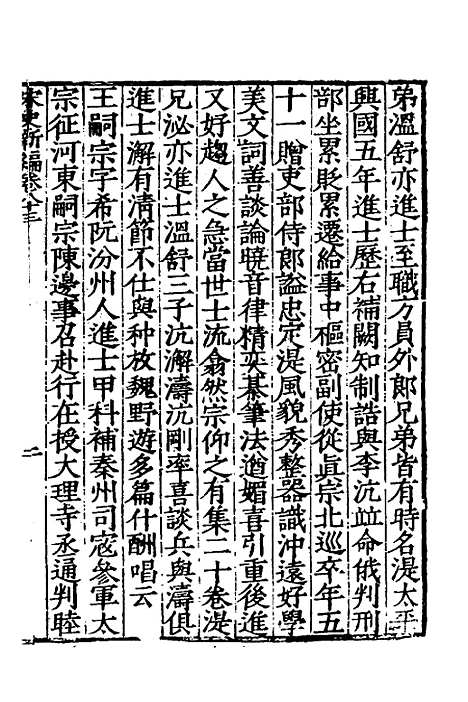 弟溫舒亦進士至職方員外郎兄弟皆有時名湜太平
興國五年進士歷右補闕知制誥與李沆竝命俄判刑
部坐累貶累遷給事中樞密副使從眞宗北巡卒年五
十一贈吏部侍郎謚忠定湜風貌秀整器識沖遠好學
美文詞善談論曉音律精奕棊筆法遒媚喜引重後進
又好趨人之急當世士流翕然宗仰之有集二十卷湜
兄泌亦進士溫舒三子沆澥濤沆剛率喜談兵與濤俱
進士澥有清節不仕與种放魏野遊多篇什酬唱云
王嗣宗字希阮汾州人進士甲科補秦州司宼參軍太
宗征河東嗣宗陳邊事召赴行在授大理寺丞通判睦
宋史新編卷八十三
二